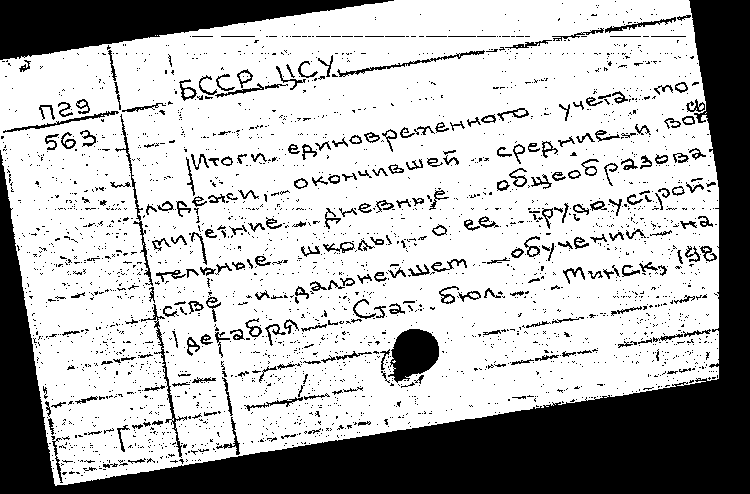 БССР. ЦСУ.
П29
563
Итоги единовременного учета мо-
лодежи, окончившей средние и вос
милетние дневные общеобразова-
тельные школы, о ее трудоустрой-
стве и дальнейшем обучении на
1 декабря. Стат. бюл. - Минск, 198